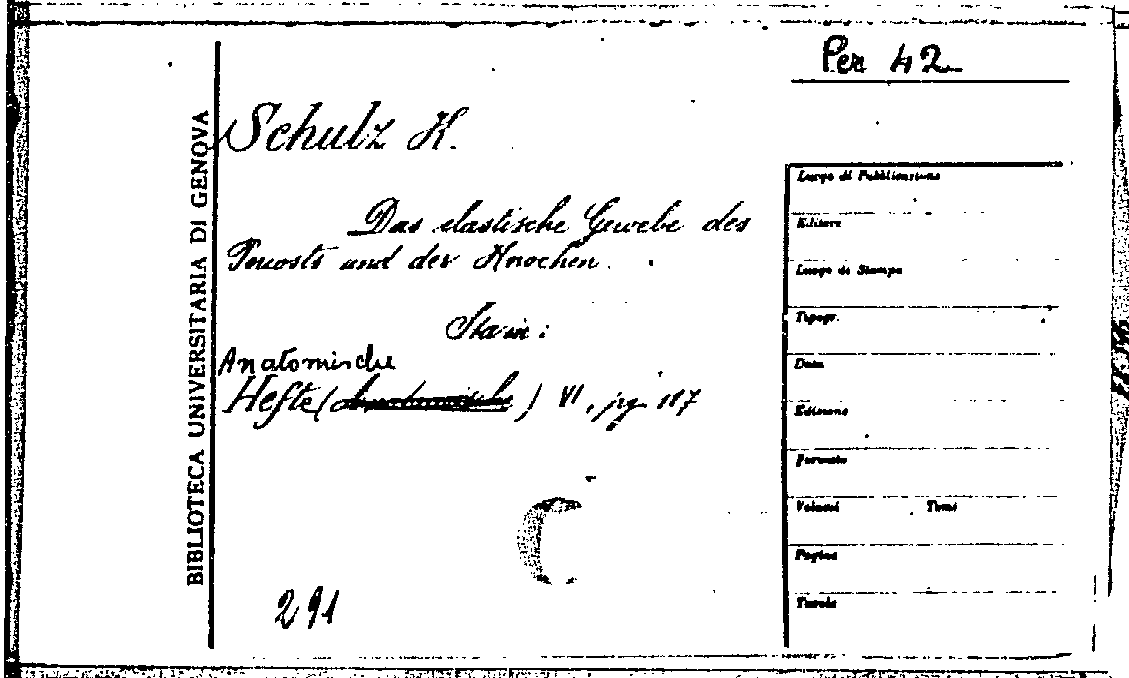 Per 42
BIBLIOTECA UNIVERSITARIA DI GENOVA
Schulz K.
Das elastische Gewebe des
Periosts und der Knochen.
Sta in:
Anatomische
Hefte (Anatomische) VI, pg. 187
291
Luogo di Pubblicazione
Editore
Luogo di Stampa
Tipogr.
Data
Edizione
Formato
Volumi Tomi
Pagine
Tavole